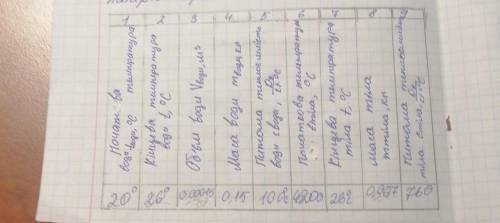 1 2 3 4 5 6 7 8 9
температура
води tводи, °C
Кінцева температура
води t, °C
Об'єм води Vводи, м³
Маса води mводи, кг
Питома теплоємність
води cводи,
Початкова температура
tтіла, °C
Кінцева температура
тіла t, °C
маса тіла
mтіла, кг
Питома теплоємність
тіла cтіла,
20° 26° 0,00015 0,15 100° 4200 26° 760